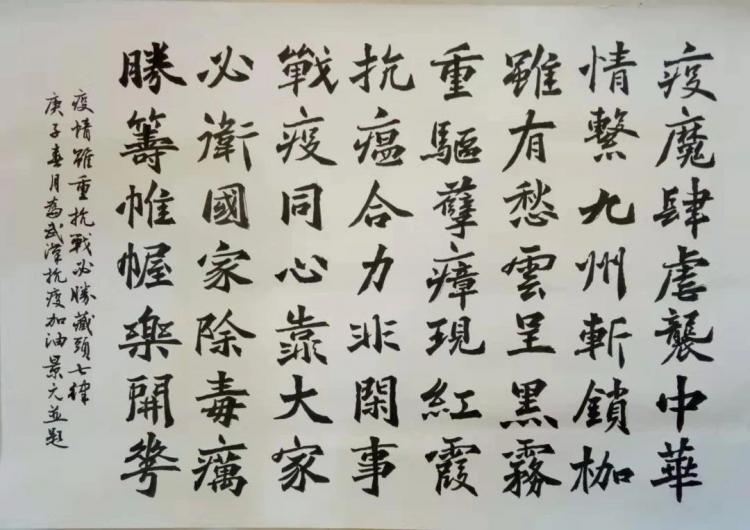 疫魔肆虐襲中華
情繫九州斬鎖枷
雖有愁雲呈黑霧
重驅孽瘴現紅霞
抗瘟合力非閑事
戰疫同心靠大家
必衛國家除毒癘
勝籌帷幄樂開花
疫情雖重抗戰必勝藏頭七律
庚子春月為武漢抗疫加油景元並題